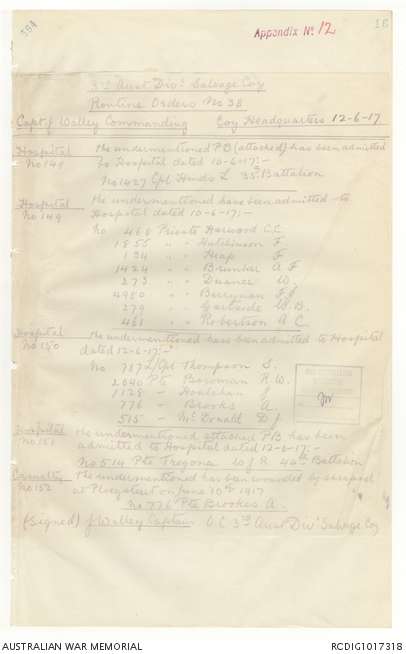 394
Appendix No 12
18
3rd Aust Divl Salvage Coy
Routine Orders No 38
Capt J Walley Commanding Coy Headquarters 12-6-17
Hospital The undermentioned P.B (attached) has been admitted
No 148 to Hospital dated 10-6-17:-
No 1427 Cpl Hinds L 35th Battalion
Hospital The undermentioned have been admitted to
No 149 Hospital dated 10-6-17:-
No 460 Private Harwood C.C.
1855 " " Hutchinson F.
134 " " Heap F
1424 " " Brunker A F
273 " " Duance W.
4980 " " Berryman F J
279 " " Garside W.B.
461 " " Robertson A C.
Hospital The undermentioned have been admitted to Hospital
No 150 dated 12-6-17:-
No 717 L/Cpl Thompson S.
2040 Pte Bowman R.W.
1128 - Houlahan J
776 - Brooks A.
515 - McDonald D J.
Hospital The undermentioned attached P/B has been
No 151 admitted to Hospital dated 12-6-17:-
No 514 Pte Tregona W J R 40th Battalion
Casualty The undermentioned has been wounded by shrapnel
No 152 at Ploegsteert on June 10th 1917
No 776 Pte Brookes A.
(Signed) J Walley Captain O.C 3rd Aust Divl Salvage Coy
AUSTRALIAN WAR MEMORIAL
RCDIG1017318